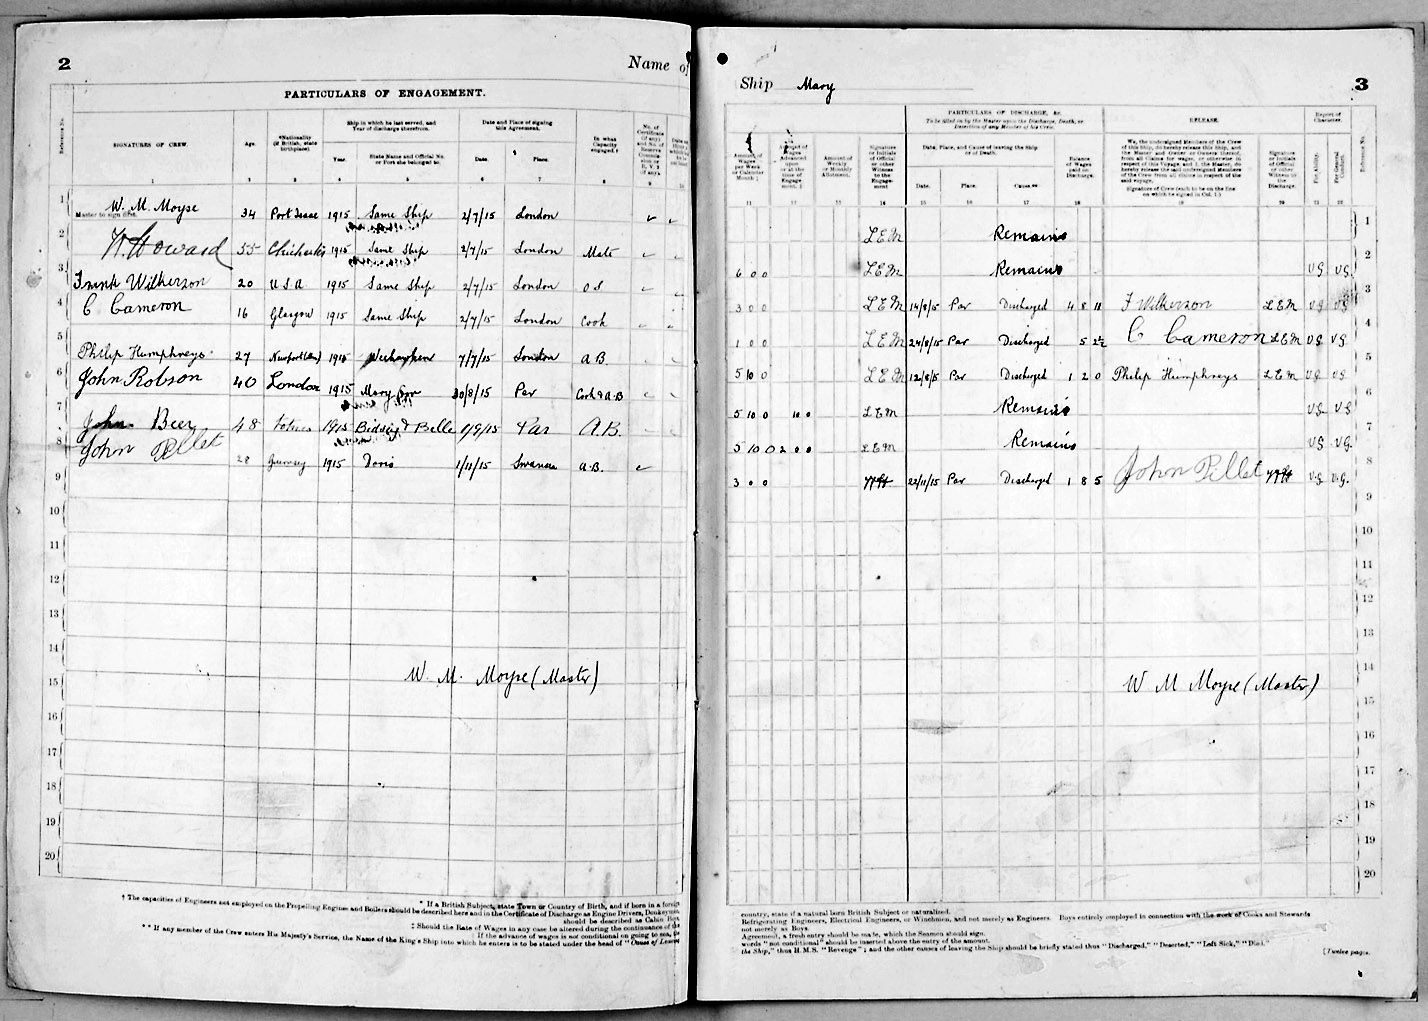 2
Name of
PARTICULARS OF ENGAGEMENT.
Reference No.
SIGNATURES OF CREW.
Age.
*Nationality (If British, state birthplace).
Ship in which he last served, and Year of discharge therefrom.
Year.
State Name and Official No. or Port she belonged to.
Date and Place of signing this Agreement.
Date.
Place.
In what Capacity engaged.†
No. of Certificate (if any)
1 3 4 5 6 7 8 9
1 W. M. Moyse 34 Port Isaac 1915 Same Ship 2/7/15 London
Master to sign first.
2 W. Howard 55 Chichester 1915 Same Ship 2/7/15 London Mate
3 Frank Wilkerson 20 U.S.A 1915 Same Ship 2/7/15 London O S
4 C. Cameron 16 Glasgow 1915 Same Ship 2/7/15 London Cook
5 Philip Humphreys 27 Newport 1915 7/7/15 London A B.
6 John Robson 40 London 1915 Mary 30/8/15 Par Cook & A B
7 John Beer 48 Totnes 1915 Belle 1/9/15 Par A.B.
8 John Pillet 28 Guernsey 1915 Doris 1/11/15 Swansea A.B.
9
10
11
12
13
14
W. M. Moyse (Master)
15
16
17
18
19
20
† The capacities of Engineers not employed on the Propelling Engines and Boilers should be described here and in the Certificate of Discharge as Engine Drivers, Donkeymen
* If a British Subject, state Town or Country of Birth, and if born in a foreign
should be described as Cabin Boy,
‡ Should the Rate of Wages in any case be altered during the continuance of the
If the advance of wages is not conditional on going to sea, the
** If any member of the Crew enters His Majesty's Service, the Name of the King's Ship into which he enters is to be stated under the head of "Cause of Leaving
Ship Mary
3
PARTICULARS OF DISCHARGE, &c.
To be filled in by the Master upon the Discharge, Death, or Desertion of any Member of his Crew.
RELEASE.
Report of Character.
Amount of Wages per Week or Calendar Month ‡
Amount of Wages Advanced upon or at the time of Engagement. ‡
Amount of Weekly or Monthly Allotment.
Signature or Initials of Official or other Witness to the Engagement
Date, Place, and Cause of leaving the Ship or of Death.
Date.
Place.
Cause.**
Balance of Wages paid on Discharge.
We, the undersigned Members of the Crew of this Ship, do hereby release this Ship, and the Master and Owner or Owners thereof, from all Claims for wages, or otherwise in respect of this Voyage; and I, the Master, do hereby release the said undersigned Members of the Crew from all claims in respect of the said voyage.
Signature of Crew (each to be on the line on which he signed in Col. 1.)
Signature or Initials of Official or other Witness to the Discharge.
For Ability.
For General Conduct.
Reference No.
11 12 13 14 15 16 17 18 19 20 21 22
L E M Remains 1
6 0 0 L E M Remains V G V G. 2
3 0 0 L E M 14/8/5 Par Discharged 4 8 11 F Wilkerson L E M V G V G 3
1 0 0 L E M 24/8/15 Par Discharged 5 2½ C Cameron L E M V G V G 4
5 10 0 L E M 12/8/5 Par Discharged 1 2 0 Philip Humphreys L E M V G V G 5
5 10 0 10 0 L E M Remains V G V G 6
5 10 0 2 0 0 L E M Remains V G V G. 7
3 0 0 22/11/15 Par Discharged 1 8 5 John Pillet V.G. V.G. 8
9
10
11
12
13
14
W M Moyse (Master)
15
16
17
18
19
20
country, state if a natural born British Subject or naturalized.
Refrigerating Engineers, Electrical Engineers, or Winchmen, and not merely as Engineers. Boys entirely employed in connection with the work of Cooks and Stewards
not merely as Boys.
Agreement, a fresh entry should be made, which the Seamen should sign.
words "not conditional" should be inserted above the entry of the amount.
the Ship," thus H.M.S. "Revenge"; and the other causes of leaving the Ship should be briefly stated thus "Discharged," "Deserted," "Left Sick," "Died."
[Twelve pages.